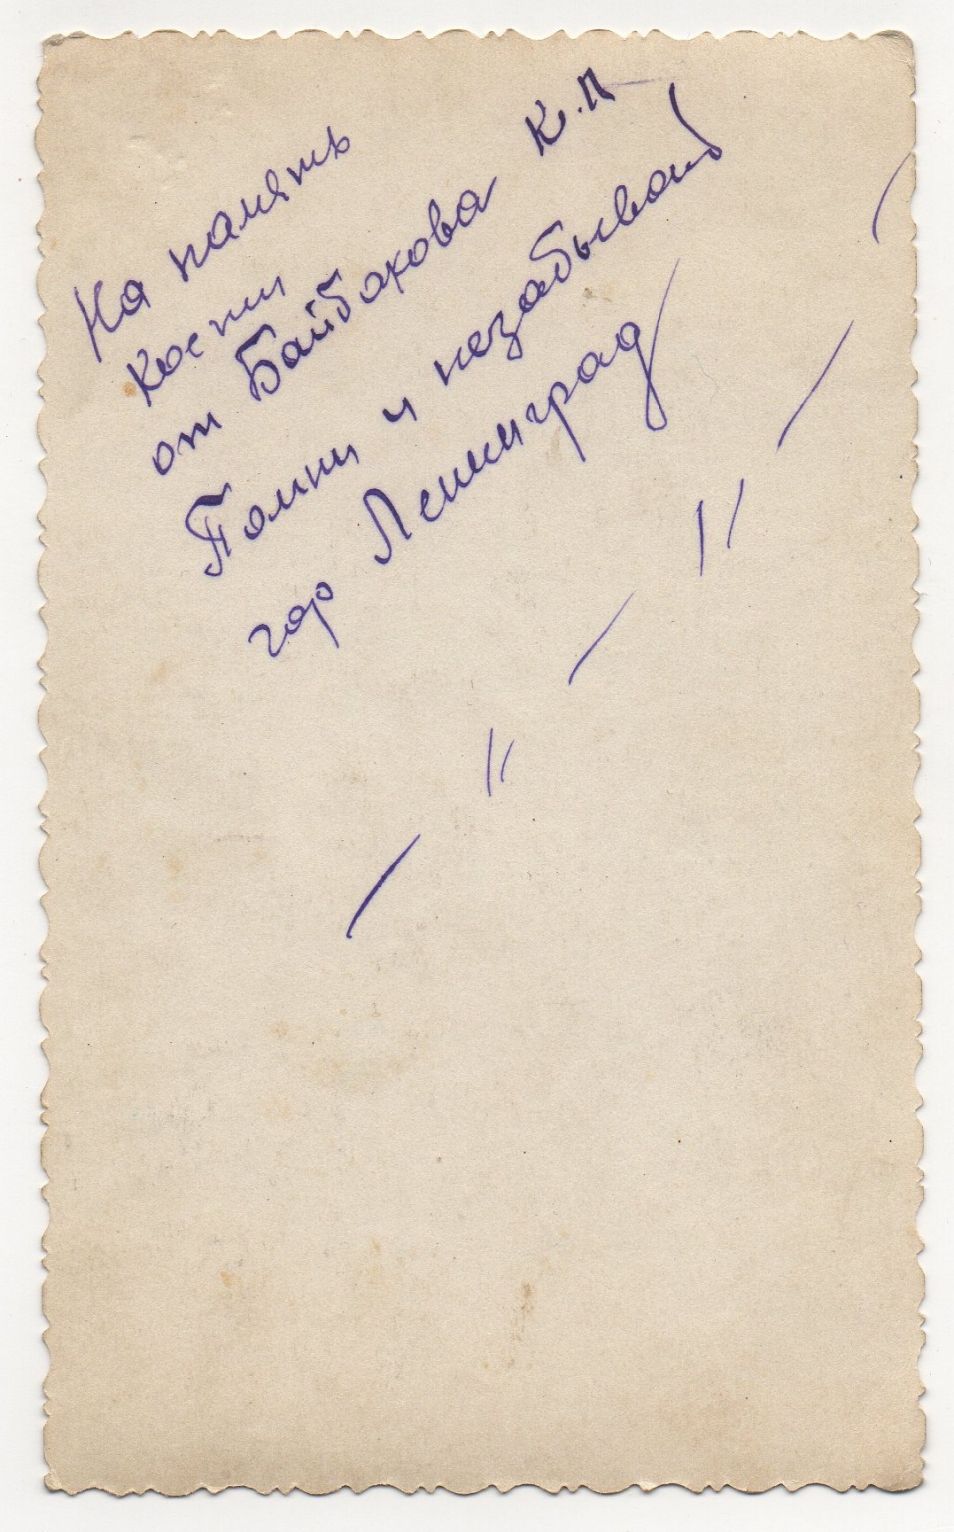 На память
Кости
от Байбакова К.П
Помни и незабывай
гор Ленинград
— " — " —